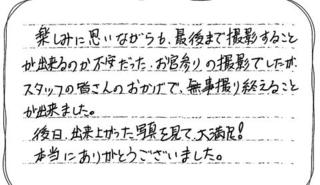 楽しみに思いながらも、最後まで撮影すること
が出来るのか不安だった、お宮参りの撮影でしたが、
スタッフの皆さんのおかげで、無事撮り終えること
が出来ました。
後日、出来上がった写真を見て、大満足!
本当にありがとうございました。